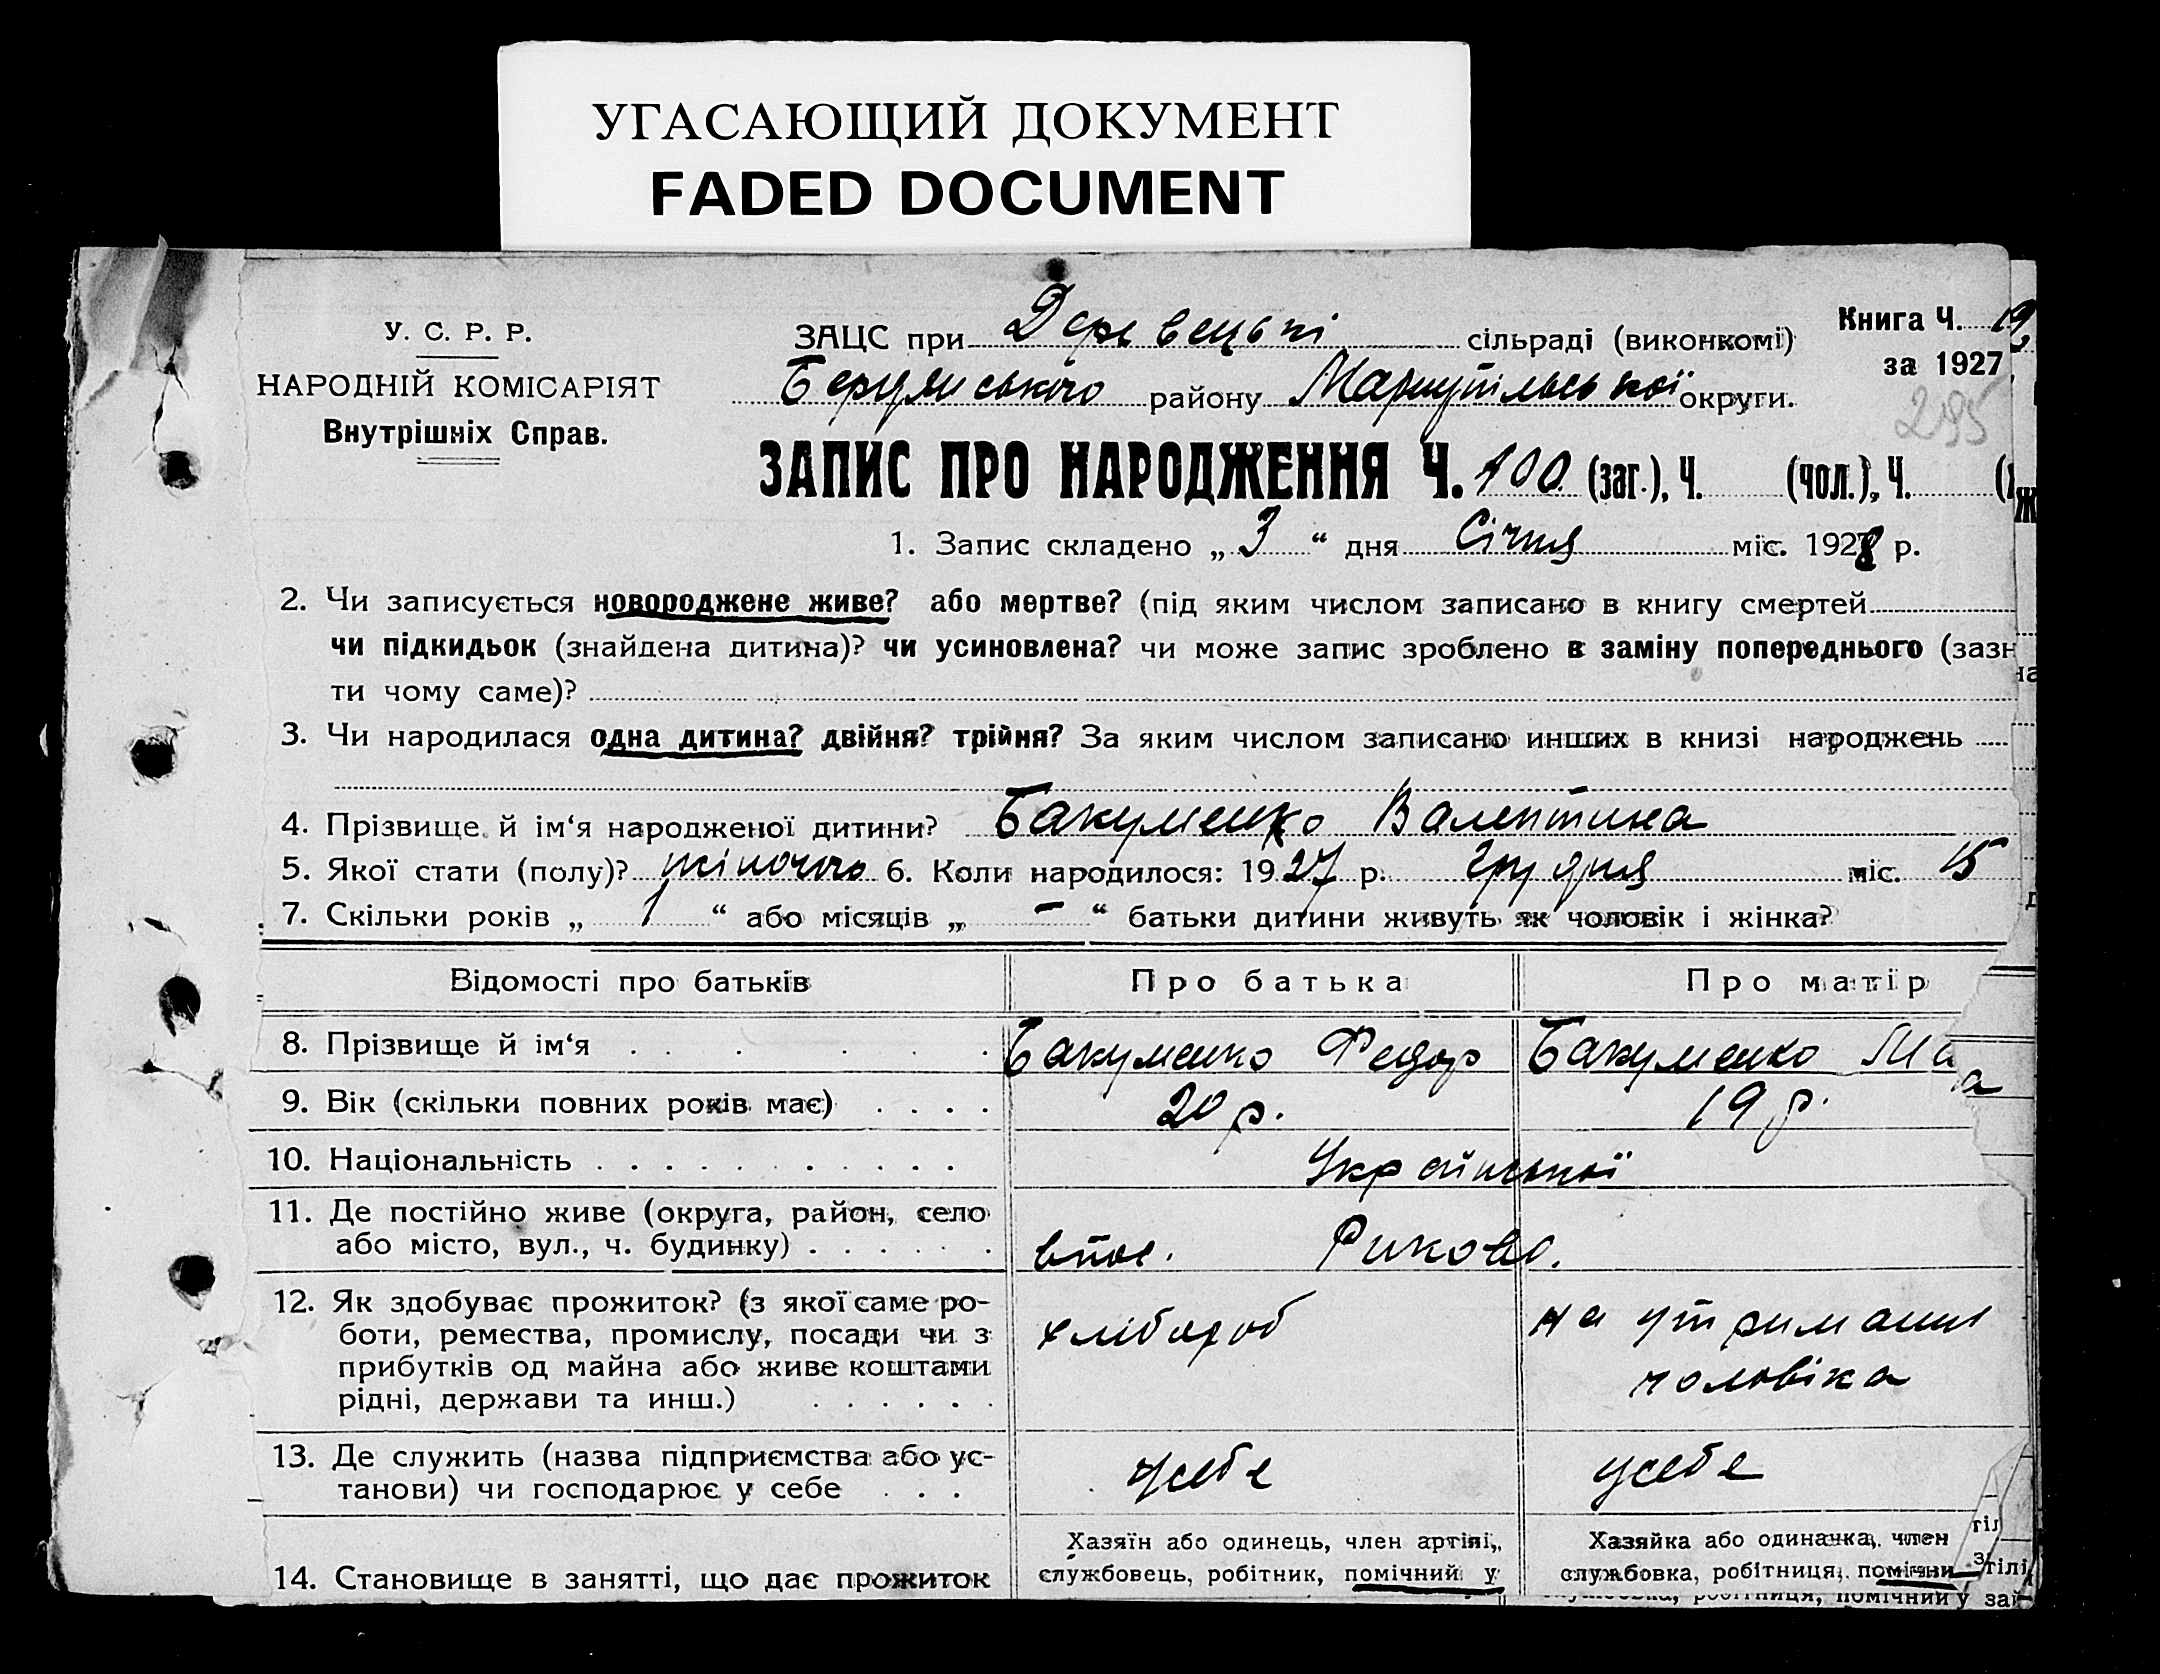 УГАСАЮЩИЙ ДОКУМЕНТ
FADED DOCUMENT
У. С. Р. Р.
НАРОДНІЙ КОМІСАРІЯТ
Внутрішніх Справ.
ЗАЦС при сільраді (виконкомі)
району Маріупільської округи.
Книга Ч. 19
за 1927
295
ЗАПИС ПРО НАРОДЖЕННЯ Ч. 100 (заг.), Ч. (чол.), Ч.
1. Запис складено „ 3 “ дня Січня міс. 1928 р.
2. Чи записується новороджене живе? або мертве? (під яким числом записано в книгу смертей
чи підкидьок (знайдена дитина)? чи усиновлена? чи може запис зроблено в заміну попереднього (зазн
ти чому саме)?
3. Чи народилася одна дитина? двійня? трійня? За яким числом записано инших в книзі народжень
4. Прізвище й ім‘я народженої дитини? Бакуменко Валентина
5. Якої стати (полу)? жіночого 6. Коли народилося: 1927 р. грудня міс. 15
7. Скільки років „ 1 “ або місяців „ - “ батьки дитини живуть як чоловік і жінка?
Відомості про батьків Про батька Про матір
8. Прізвище й ім‘я . . . . . . Бакуменко Федор Бакуменко
9. Вік (скільки повних років має) . . . . 20 р. 19 р.
10. Національність . . . . . . . . . . . Української
11. Де постійно живе (округа, район, село
або місто, вул., ч. будинку) . . . . . . Риково.
12. Як здобуває прожиток? (з якої саме ро-
боти, ремества, промислу, посади чи з
прибутків од майна або живе коштами
рідні, держави та инш.) . . . . . .
хлібороб
на утриманні
чоловіка
13. Де служить (назва підприємства або ус-
танови) чи господарює у себе . . . усебе усебе
14. Становище в занятті, що дає прожиток
Хазяїн або одинець, член артілі,
службовець, робітник, помічний у
Хазяйка або одиначка, член
службовка, робітниця, помічни